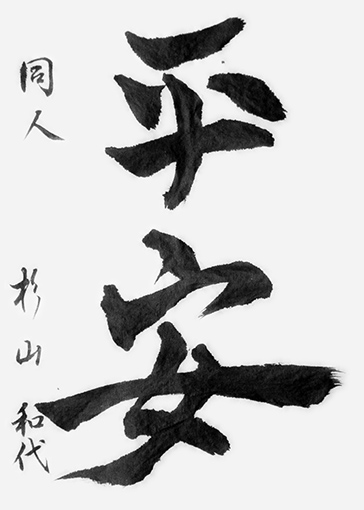 平安
同人 杉山 和代